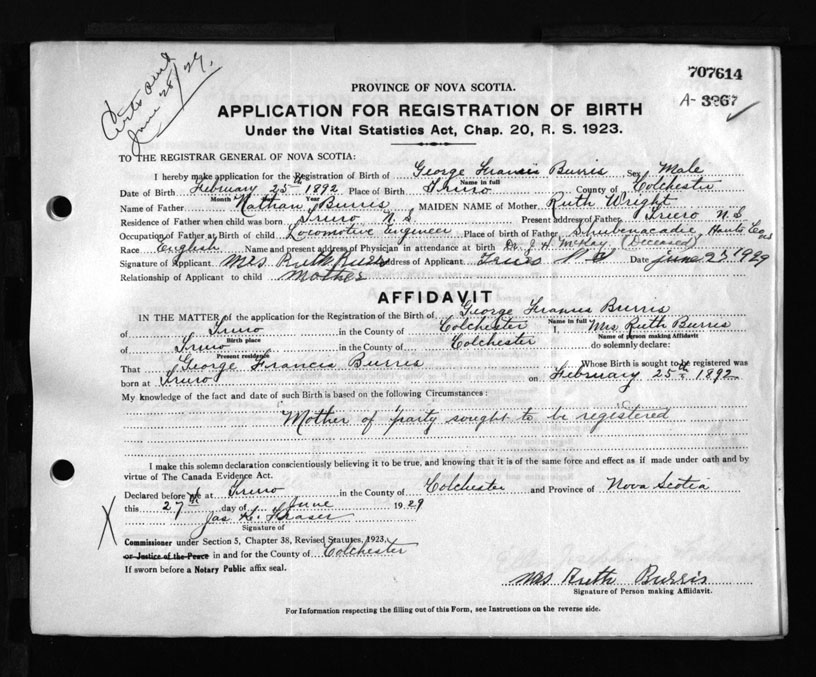 Certs sent
June 28/29.
707614
A-3867
PROVINCE OF NOVA SCOTIA.
APPLICATION FOR REGISTRATION OF BIRTH
Under the Vital Statistics Act, Chap. 20, R. S. 1923.
TO THE REGISTRAR GENERAL OF NOVA SCOTIA:
I hereby make application for the Registration of Birth of George Francis Burris Sex Male
Name in full
Date of Birth February 25th 1892 Place of Birth Truro County of Colchester
Month Year
Name of Father Nathan Burris MAIDEN NAME of Mother Ruth Wright
Residence of Father when child was born Truro N.S Present address of Father Truro N.S
Occupation of Father at Birth of child Locomotive Engineer Place of birth of Father Shubenacadie, Hants Co NS
Race English Name and present address of Physician in attendance at birth Dr. J. H. McKay (Deceased)
Signature of Applicant Mrs Ruth Burris Address of Applicant Truro N S Date June 27, 1929
Relationship of Applicant to child Mother
AFFIDAVIT
IN THE MATTER of the application for the Registration of Birth of George Francis Burris
Name in full
of Truro in the County of Colchester I, Mrs Ruth Burris
Birth place Name of person making Affidavit
of Truro in the County of Colchester do solemnly declare:
Present residence
That George Francis Burris Whose Birth is sought to be registered was
born at Truro on February 25th 1892
My knowledge of the fact and date of such Birth is based on the following Circumstances:
Mother of party sought to be registered
I make this solemn declaration conscientiously believing it to be true, and knowing that it is of the same force and effect as if made under oath and by
virtue of The Canada Evidence Act.
Declared before me at Truro in the County of Colchester and Province of Nova Scotia
this 27th day of June 1929
Jas K. Fraser
Signature of
X
Commissioner under Section 5, Chapter 38, Revised Statutes, 1923,
or Justice of the Peace in and for the County of Colchester
If sworn before a Notary Public affix seal.
Mrs Ruth Burris
Signature of Person making Affidavit.
For Information respecting the filling out of this Form, see Instructions on the reverse side.